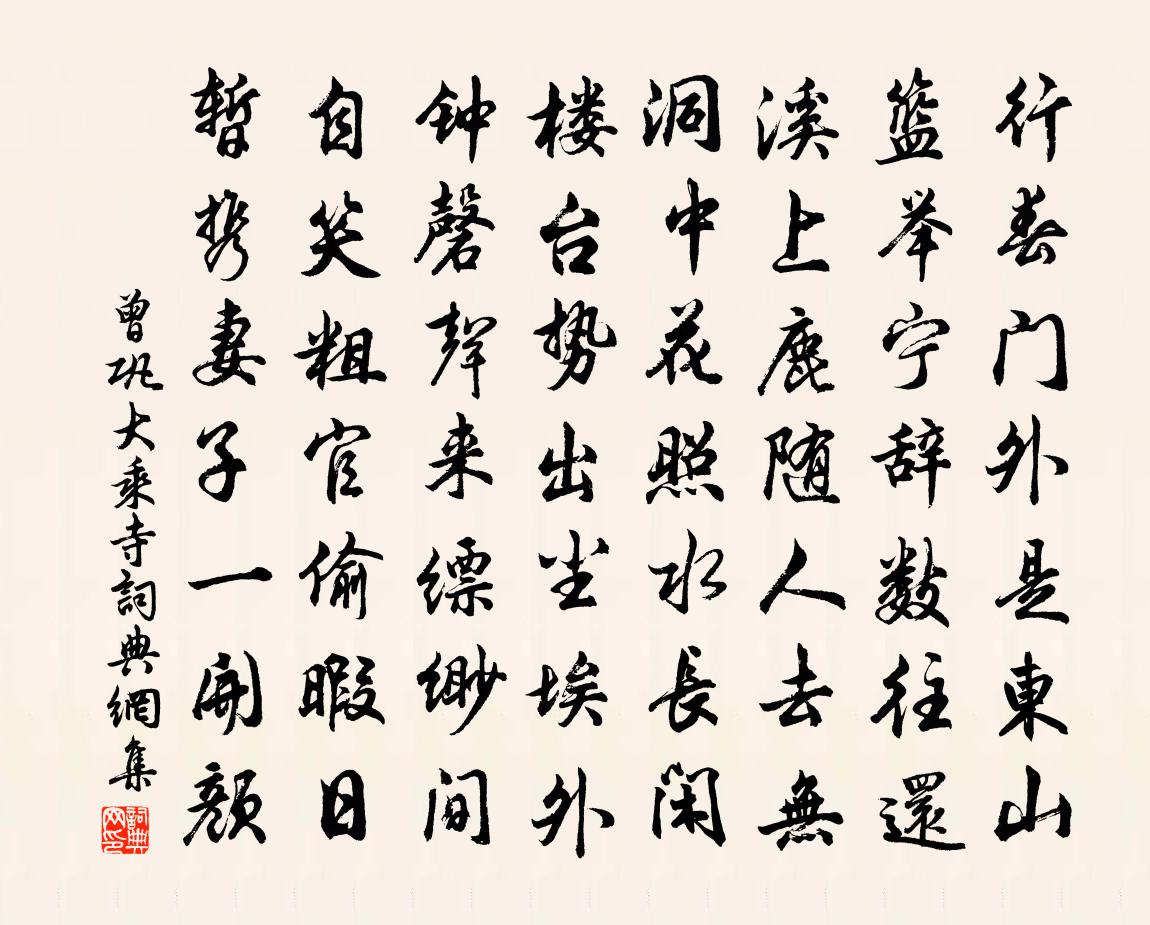 行春门外是東山
籃举宁辞数往還
溪上鹿随人去無
洞中花照水長闲
楼台势出尘埃外
钟磬聲来缥缈间
自笑粗官偷暇日
暂携妻子一開颜
曾巩大乘寺詞典網集
詞典网印